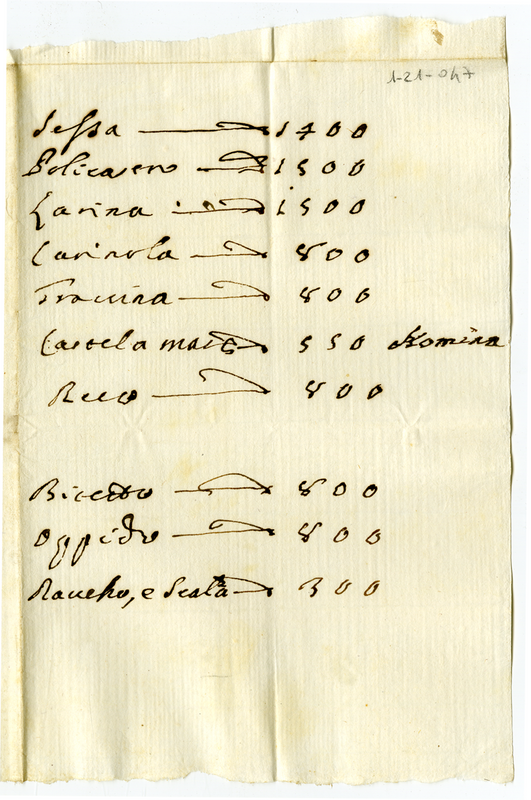 1-21-047
Sessa 1400
Policastro 1500
Larina 1500
Carinola 800
Traccina 800
Castela mare 550 Nomina
800
800
Oppido 800
Ravello, e Scala 300